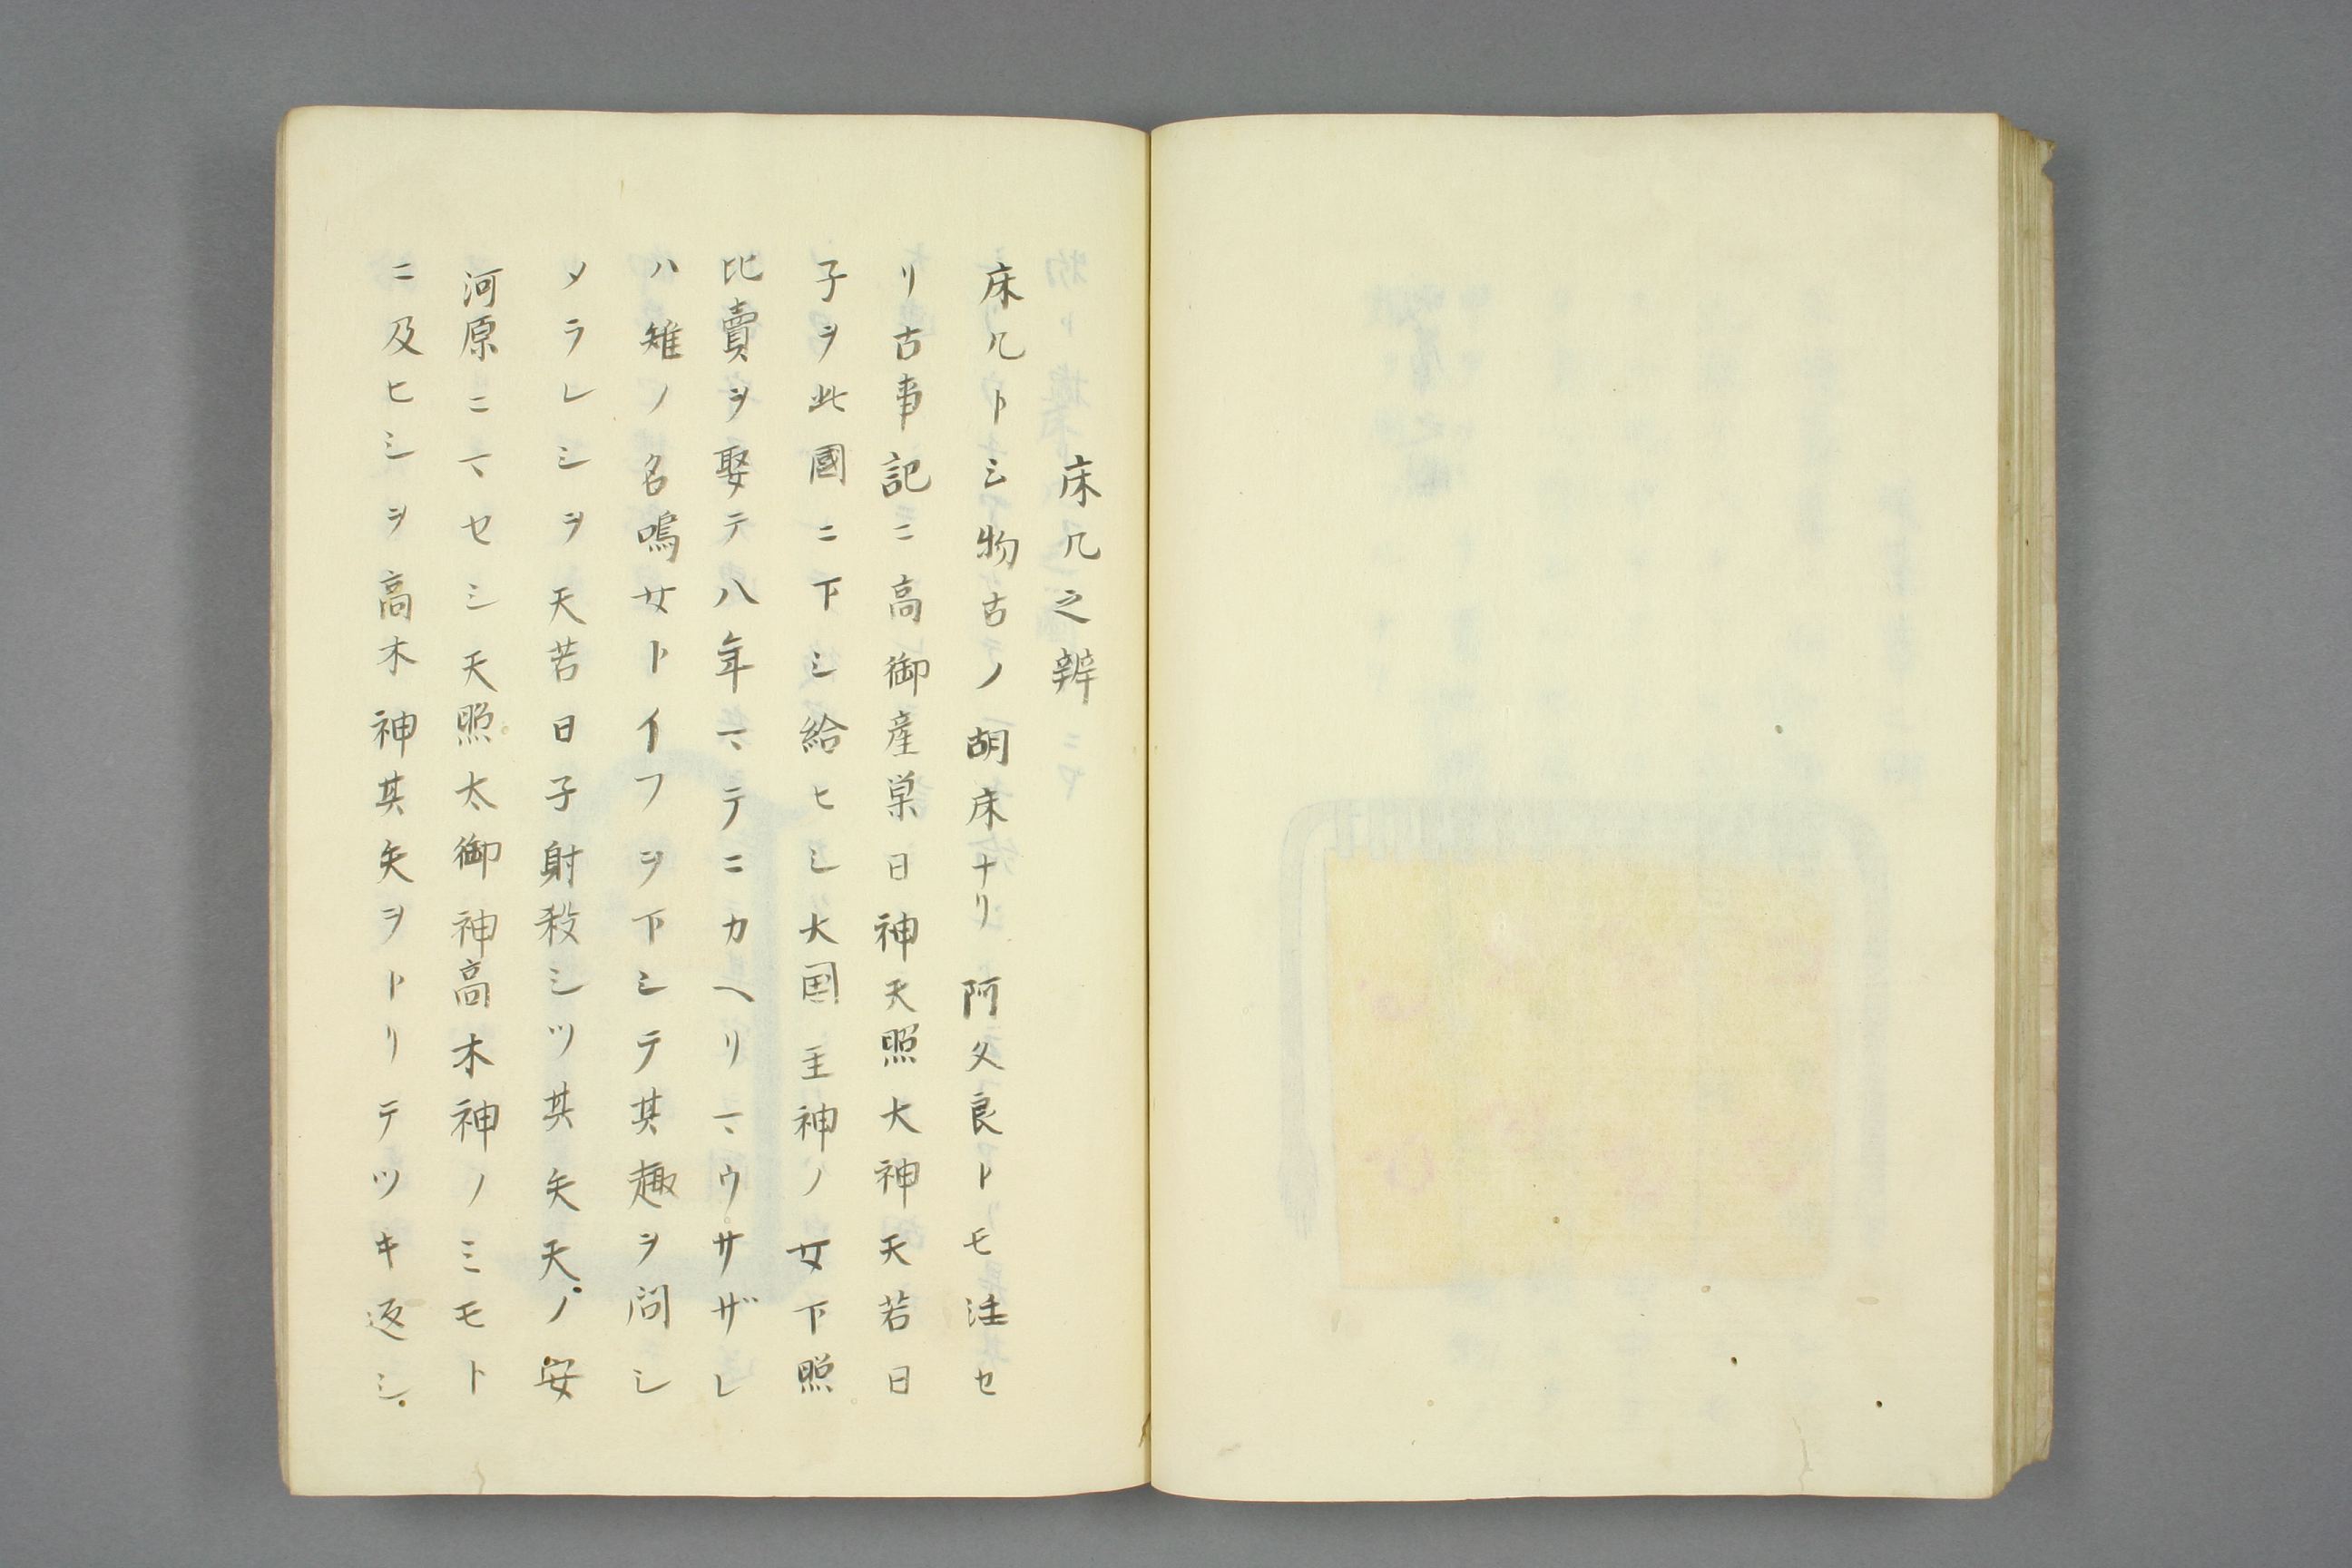 床几之辨
床几トシ物古ノ胡床ナリ阿久良トモ注セ
リ古事記ニ高御産巣日神天照大神天若日
子ヲ此國ニ下シ給ヒシ大国主神ノ女下照
比賣ヲ娶テ八年マテニカヘリマウサザレ
ハ雉ノ名鳴女トイフヲ下シテ其趣ヲ問シ
メラレシヲ天若日子射殺シツ其矢天ノ安
河原ニマセシ天照太御神高木神ノミモト
ニ及ヒシヲ高木神其矢ヲトリテツキ返シ